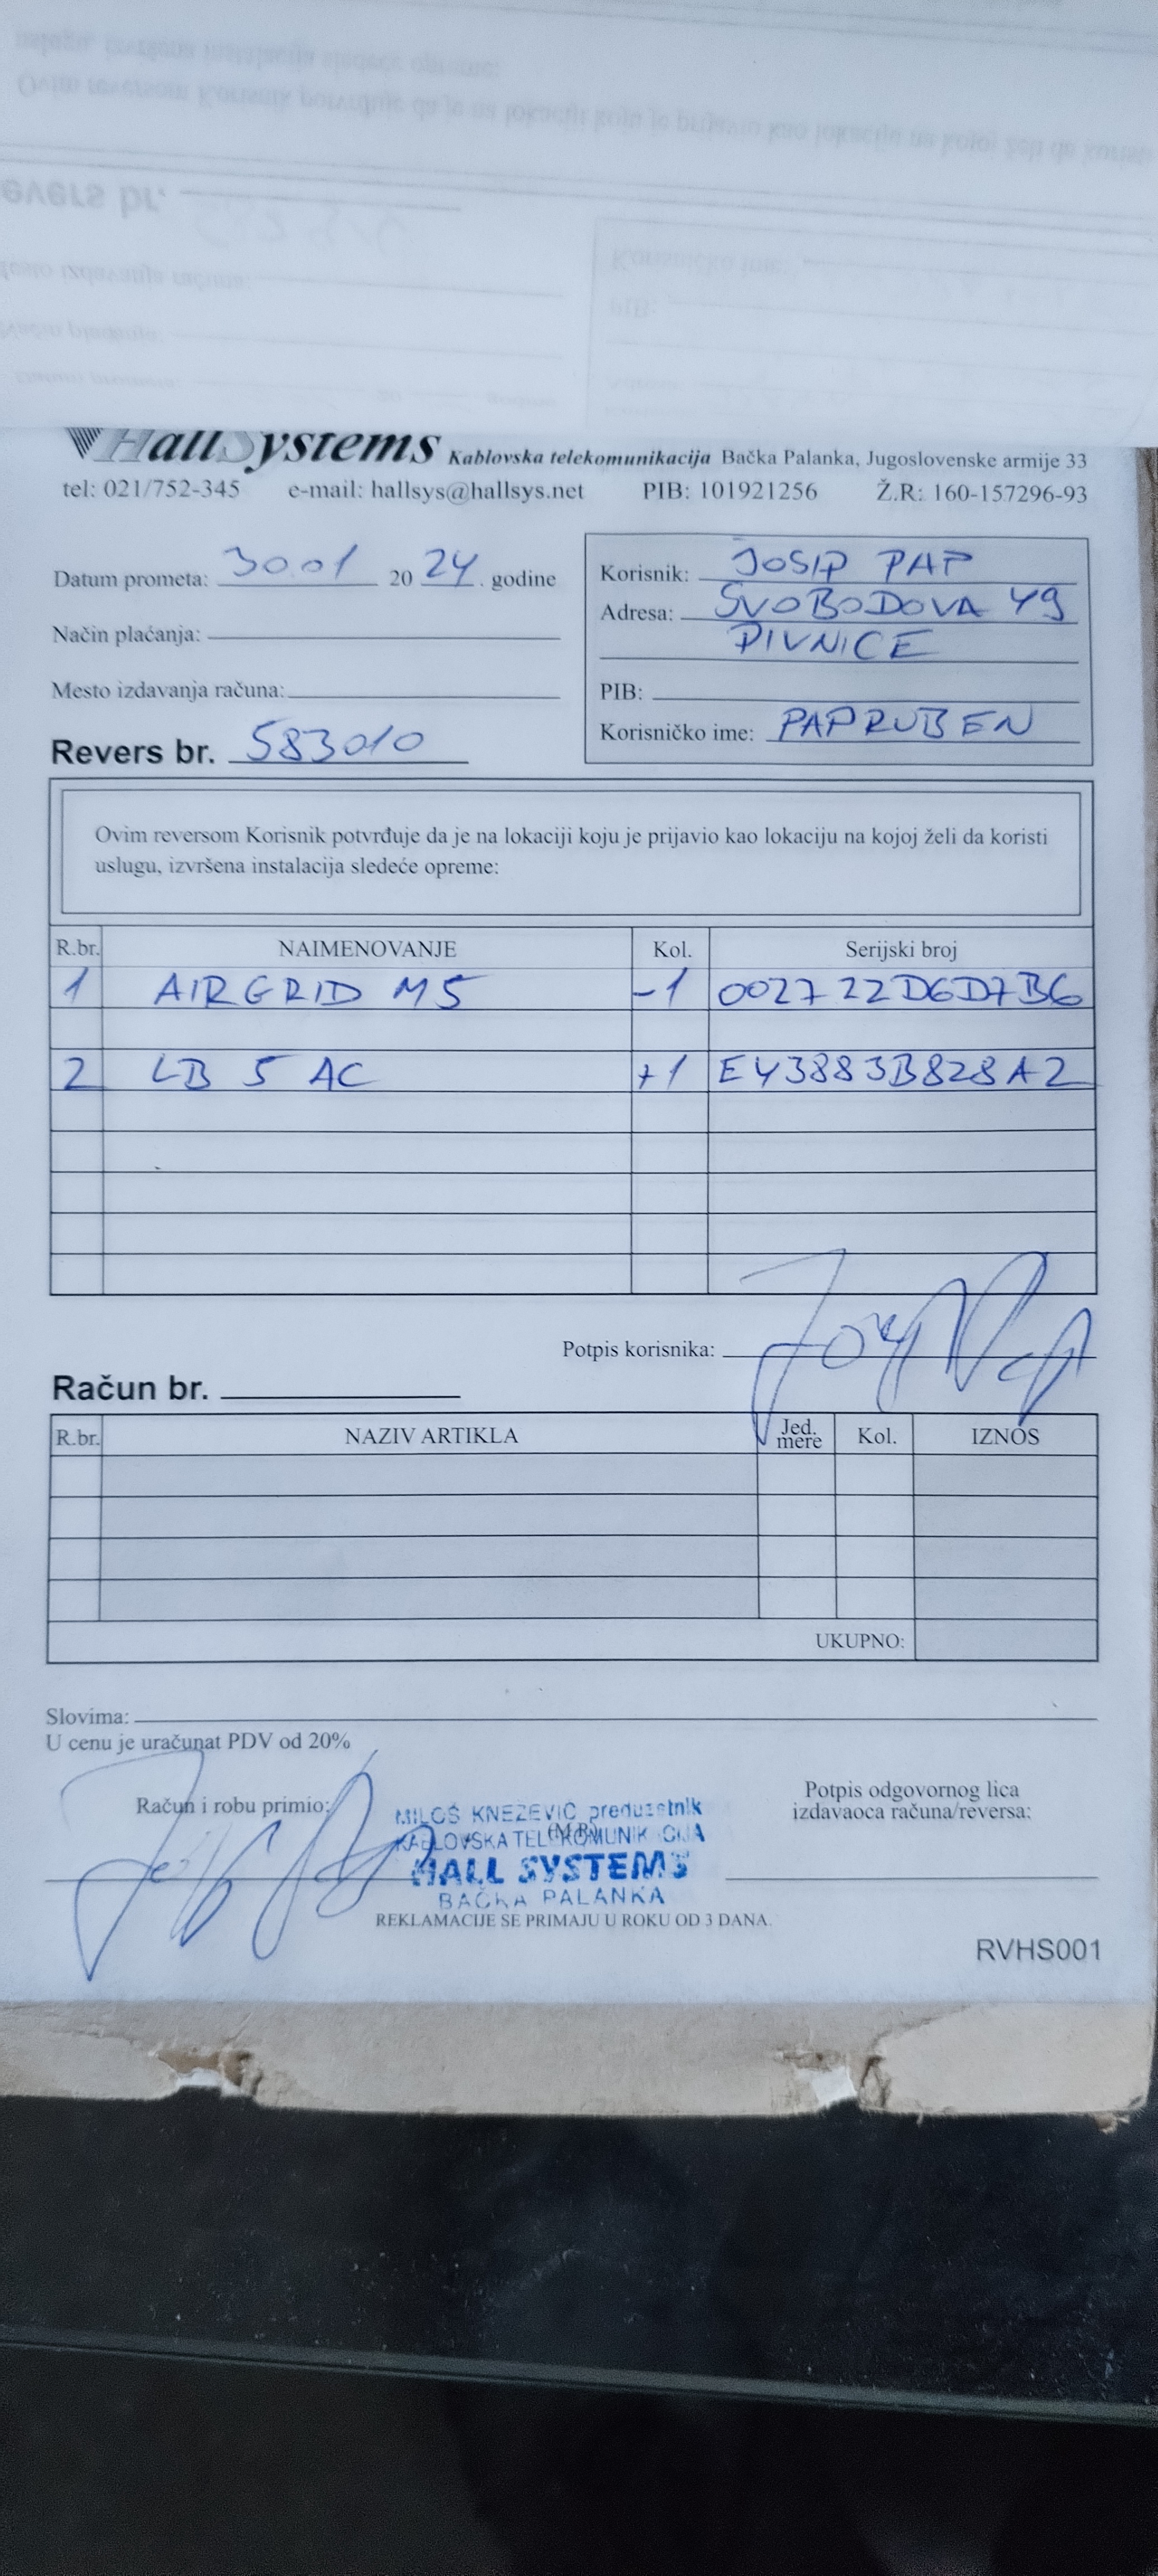 HallSystems Kablovska telekomunikacija Bačka Palanka, Jugoslovenske armije 33
tel: 021/752-345 e-mail: hallsys@hallsys.net PIB: 101921256 Ž.R: 160-157296-93
Datum prometa: 30.01 20 24. godine
Način plaćanja:
Mesto izdavanja računa:
Revers br. 583010
Korisnik: JOSIP PAP
Adresa: SVOBODOVA 49
PIVNICE
PIB:
Korisničko ime: PAPRUBEN
Ovim reversom Korisnik potvrđuje da je na lokaciji koju je prijavio kao lokaciju na kojoj želi da koristi
uslugu, izvršena instalacija sledeće opreme:
R.br. NAIMENOVANJE Kol. Serijski broj
1 AIRGRID M5 -1 002722D6D7B6
2 LB 5 AC +1 E43883B828A2
Potpis korisnika:
Račun br.
R.br. NAZIV ARTIKLA Jed. mere Kol. IZNOS
UKUPNO:
Slovima:
U cenu je uračunat PDV od 20%
Račun i robu primio:
(M.P.)
MILOŠ KNEŽEVIĆ preduzetnik
KABLOVSKA TELEKOMUNIKACIJA
HALL SYSTEMS
BAČKA PALANKA
Potpis odgovornog lica
izdavaoca računa/reversa:
REKLAMACIJE SE PRIMAJU U ROKU OD 3 DANA.
RVHS001